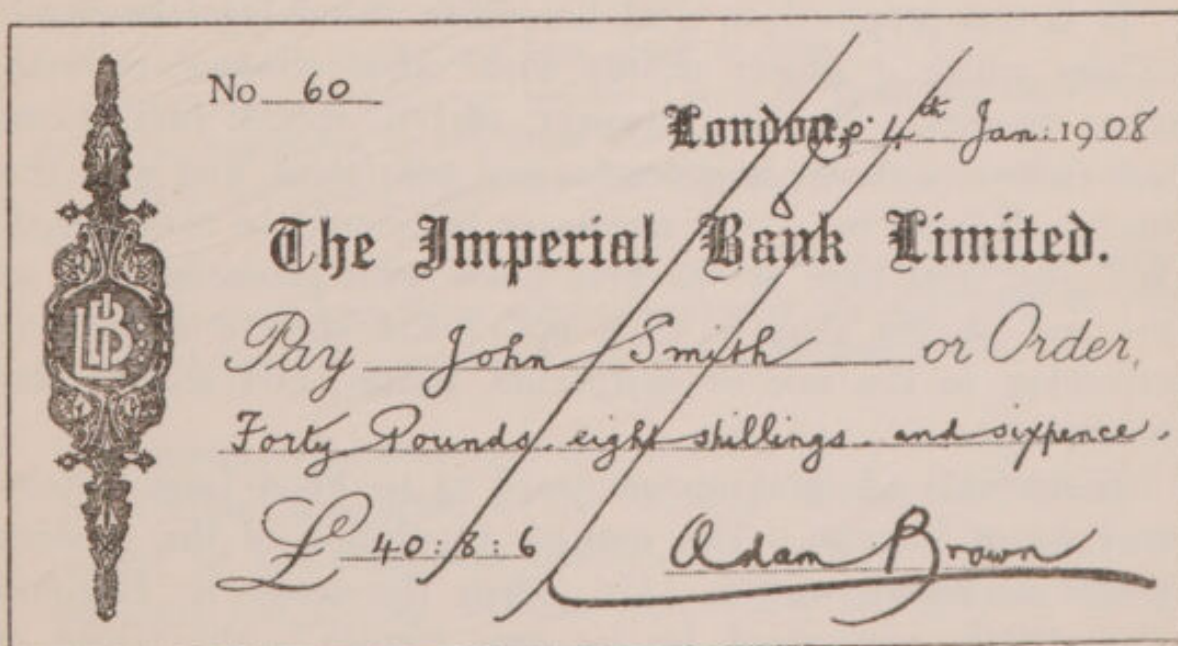 No 60
London, 4th Jan: 1908
& Co.
The Imperial Bank Limited.
Pay John Smith or Order,
Forty Pounds. eight shillings. and sixpence.
£ 40:8:6
Adam Brown